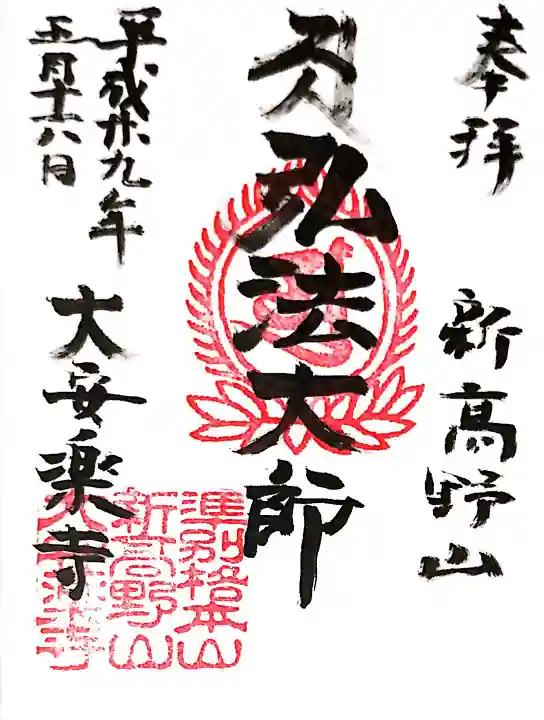 奉拝
新高野山
弘法大師
平成廿九年
五月十六日
大安楽寺
準別格本山
新高野山
大安楽寺